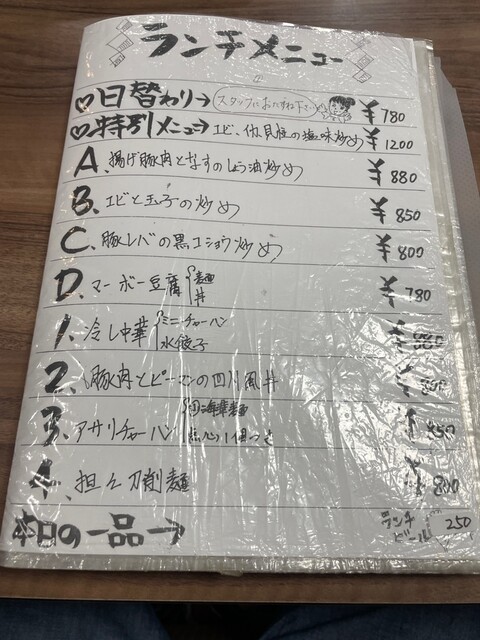 ランチメニュー
♡日替わり→ スタッフにおたずね下さい ¥780
♡特別メニュー→ エビ、イカ、貝柱の塩味炒め ¥1200
A、揚げ豚肉となすのしょう油炒め ¥880
B、エビと玉子の炒め ¥850
C、豚レバの黒コショウ炒め ¥800
D、マーボー豆腐 麺 丼 ¥780
1、冷し中華 ミニチャーハン 水餃子 ¥
2、豚肉とピーマンの四川風丼 ¥
3、アサリチャーハン 点心1個つき ¥850
4、担々刀削麺 ¥800
本日の一品→
ランチビール 250